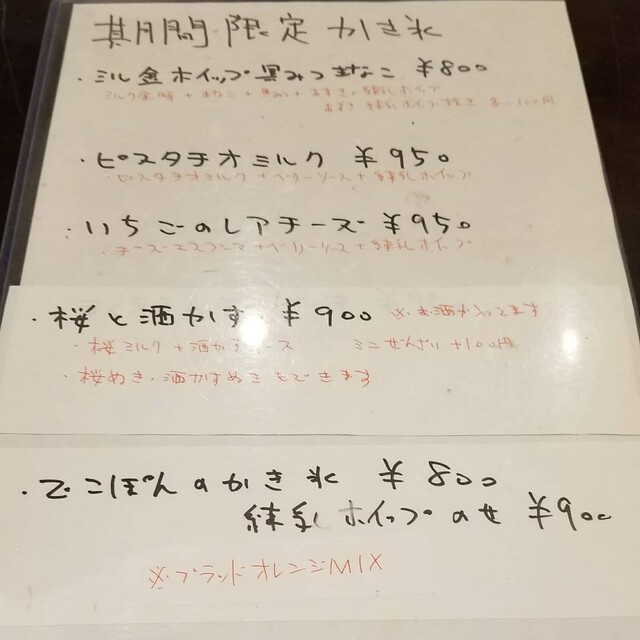 期間限定 かき氷
・ミル金ホイップ黒みつきなこ ¥800
ミルク金時 + きなこ + 黒みつ + あずき + 練乳ホイップ
あずき 練乳ホイップ抜き 各-100円
・ピスタチオミルク ¥950
・ピスタチオミルク + ベリーソース + 練乳ホイップ
・いちごのレアチーズ ¥950
・チーズエスプーマ + ベリーソース + 練乳ホイップ
・桜と酒かす ¥900 ※お酒が入ってます
・桜ミルク + 酒かすソース ミニぜんざい +100円
・桜ぬき・酒かすぬきもできます
・でこぽんのかき氷 ¥800
練乳ホイップのせ ¥900
※ブランドオレンジMIX